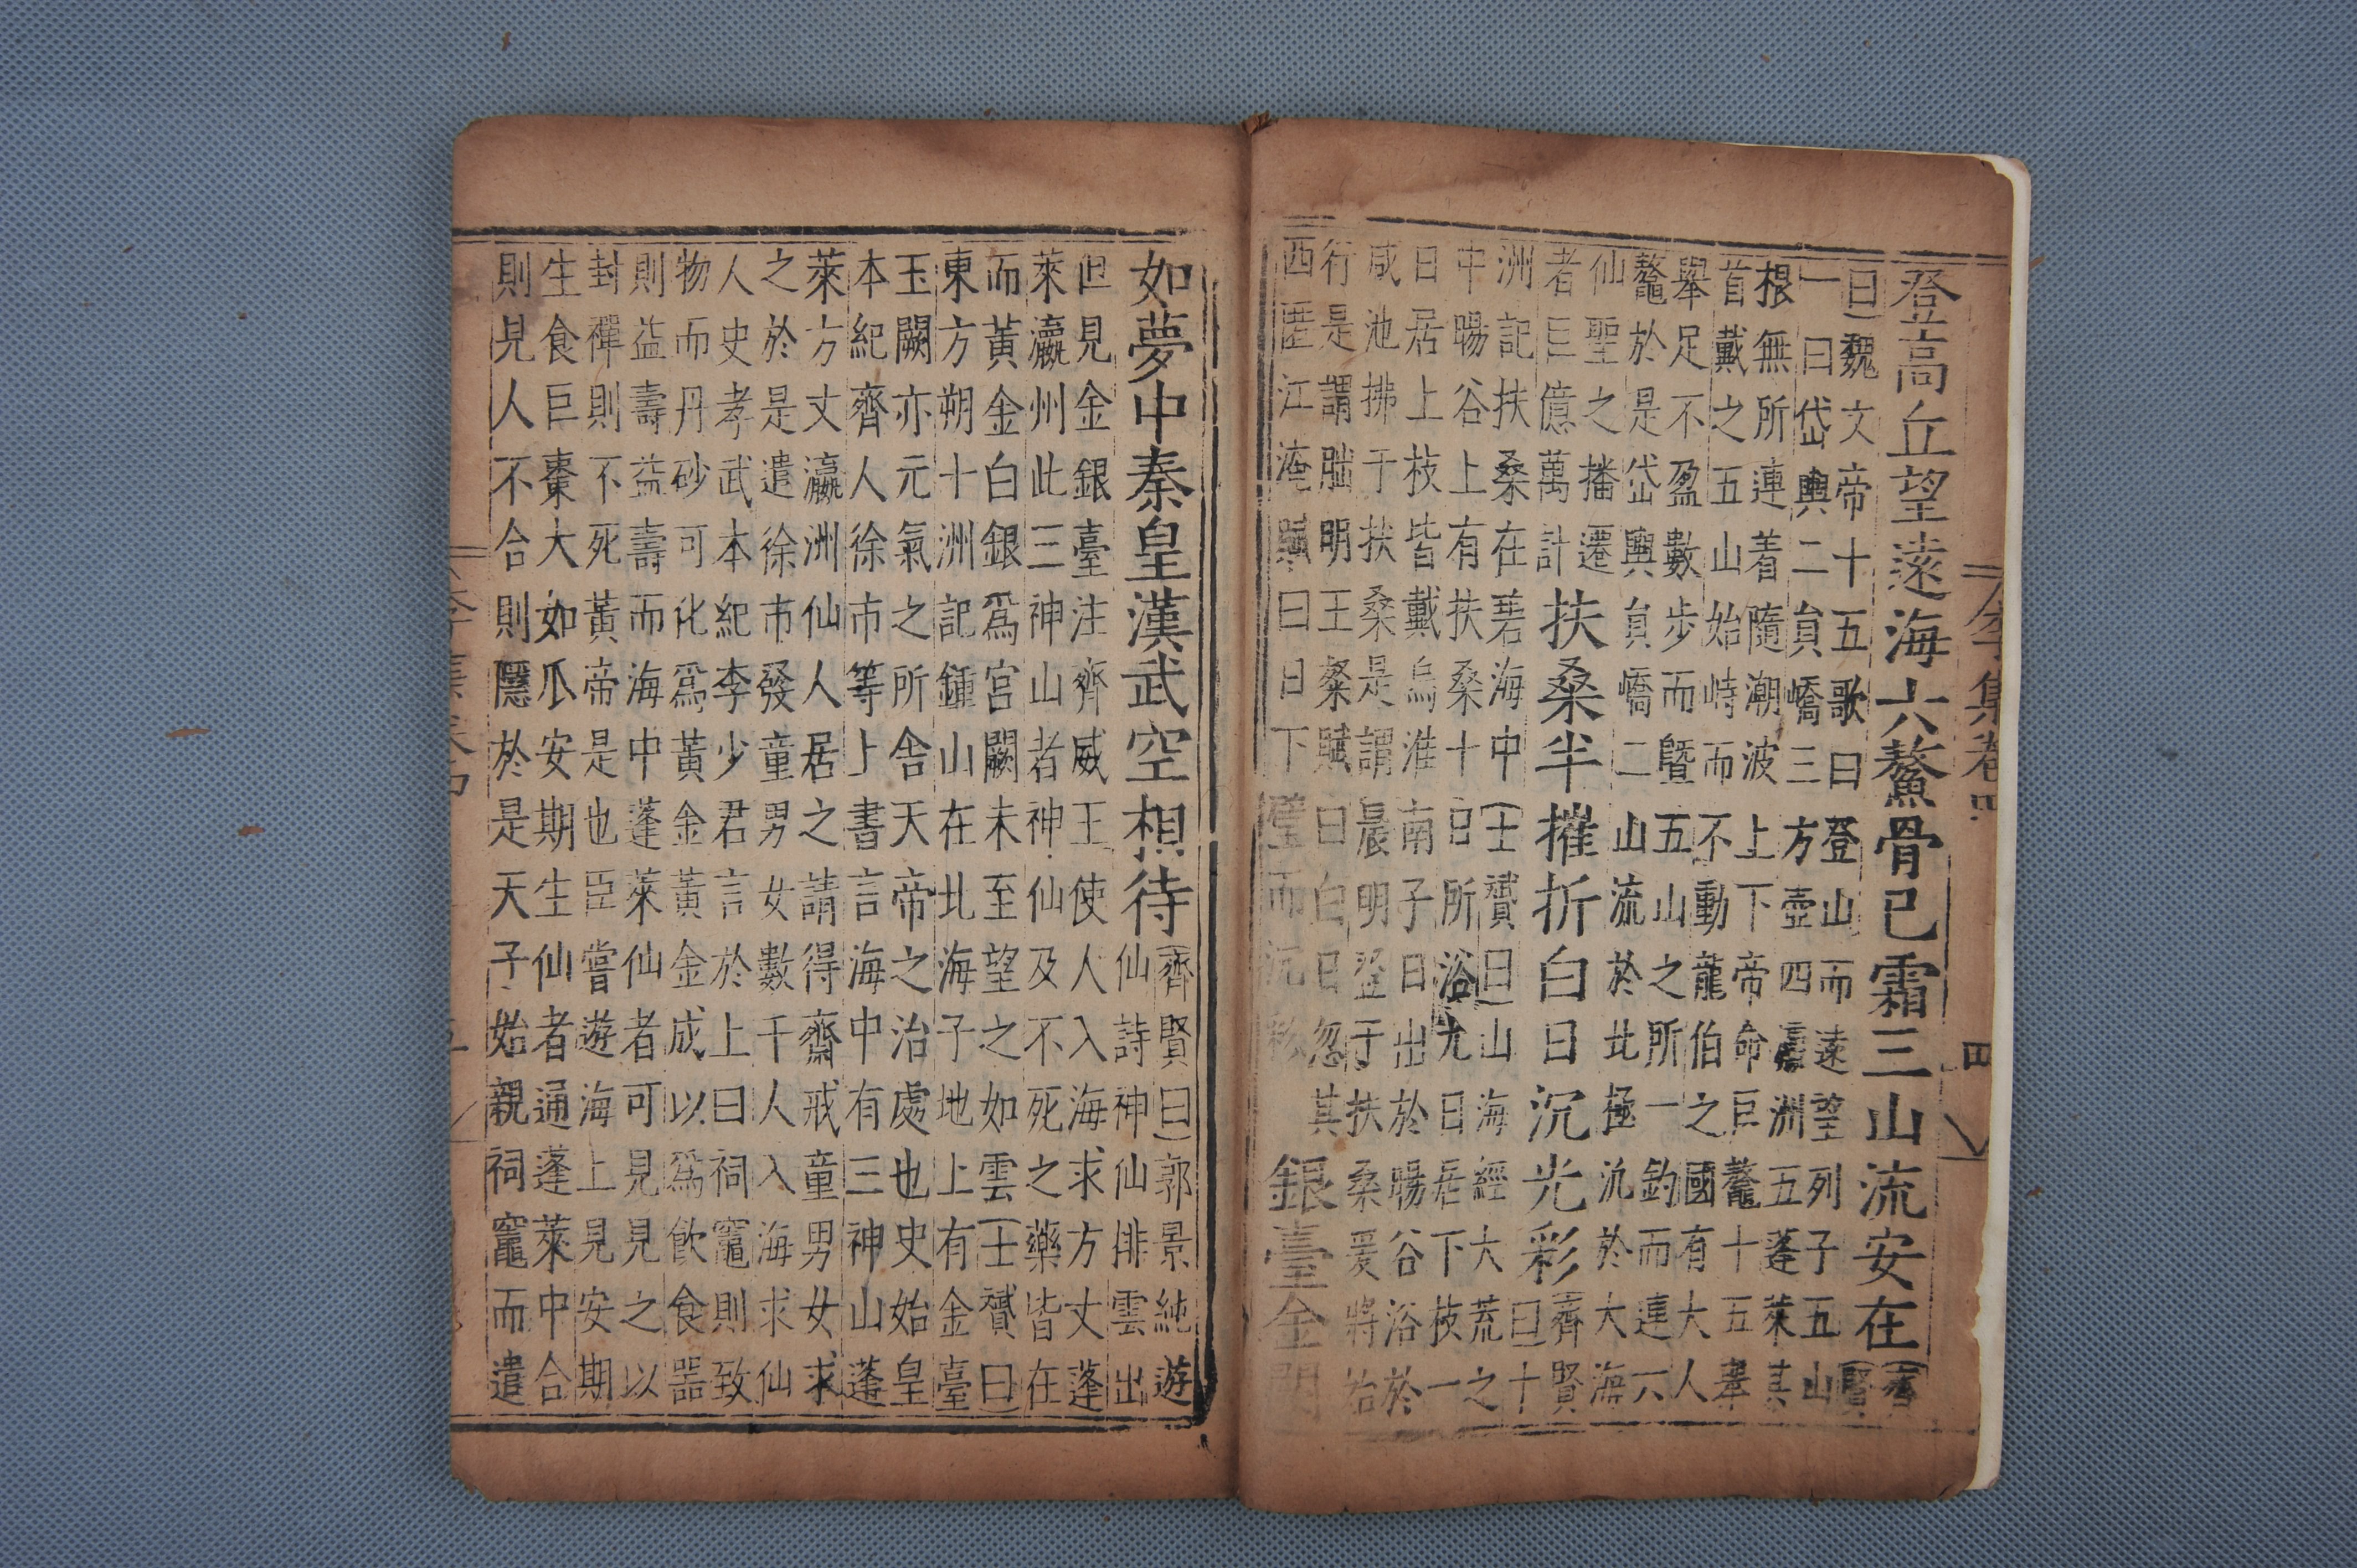 李集卷四 四
登高丘望遠海六鰲骨已霜三山流安在(齊賢
曰)魏文帝十五歌曰登山而遠望列子五山
一曰岱輿二負嶠三方壺四瀛洲五蓬萊其
根無所連着隨潮波上下帝命巨鼇十五舉
首戴之五山始峙而不動龍伯之國有大人
舉足不盈數步而暨五山之所一釣而連六
鼇於是岱輿負嶠二山流於北極沉於大海
仙聖之播遷
者巨億萬計扶桑半摧折白日沉光彩(齊賢曰)十
洲記扶桑在碧海中(士贇曰)山海經大荒之
中暘谷上有扶桑十日所浴九日居下枝一
日居上枝皆戴烏淮南子日出於暘谷浴於
咸池拂于扶桑是謂晨明登于扶桑爰將始
行是謂朏明明王粲賦曰白日忽其
西匿江淹賦曰日下壁而沉彩
銀臺金闕
如夢中秦皇漢武空相待(齊賢曰)郭景純遊
仙詩神仙排雲出
但見金銀臺注齊威王使人入海求方丈蓬
萊瀛州此三神山者神仙及不死之藥皆在
而黃金白銀為宮闕未至望之如雲(士贇曰)
東方朔十洲記鍾山在北海子地上有金臺
玉闕亦元氣之所舍天帝之治處也史始皇
本紀齊人徐市等上書言海中有三神山蓬
萊方丈瀛洲仙人居之請得齋戒童男女求
之於是遣徐市發童男女數千人入海求仙
人史孝武本紀李少君言於上曰祠竈則致
物而丹砂可化為黃金黃金成以為飲食器
則益壽益壽而海中蓬萊仙者可見見之以
封禪則不死黃帝是也臣嘗遊海上見安期
生食巨棗大如瓜安期生仙者通蓬萊中合
則見人不合則隱於是天子始親祠竈而遣